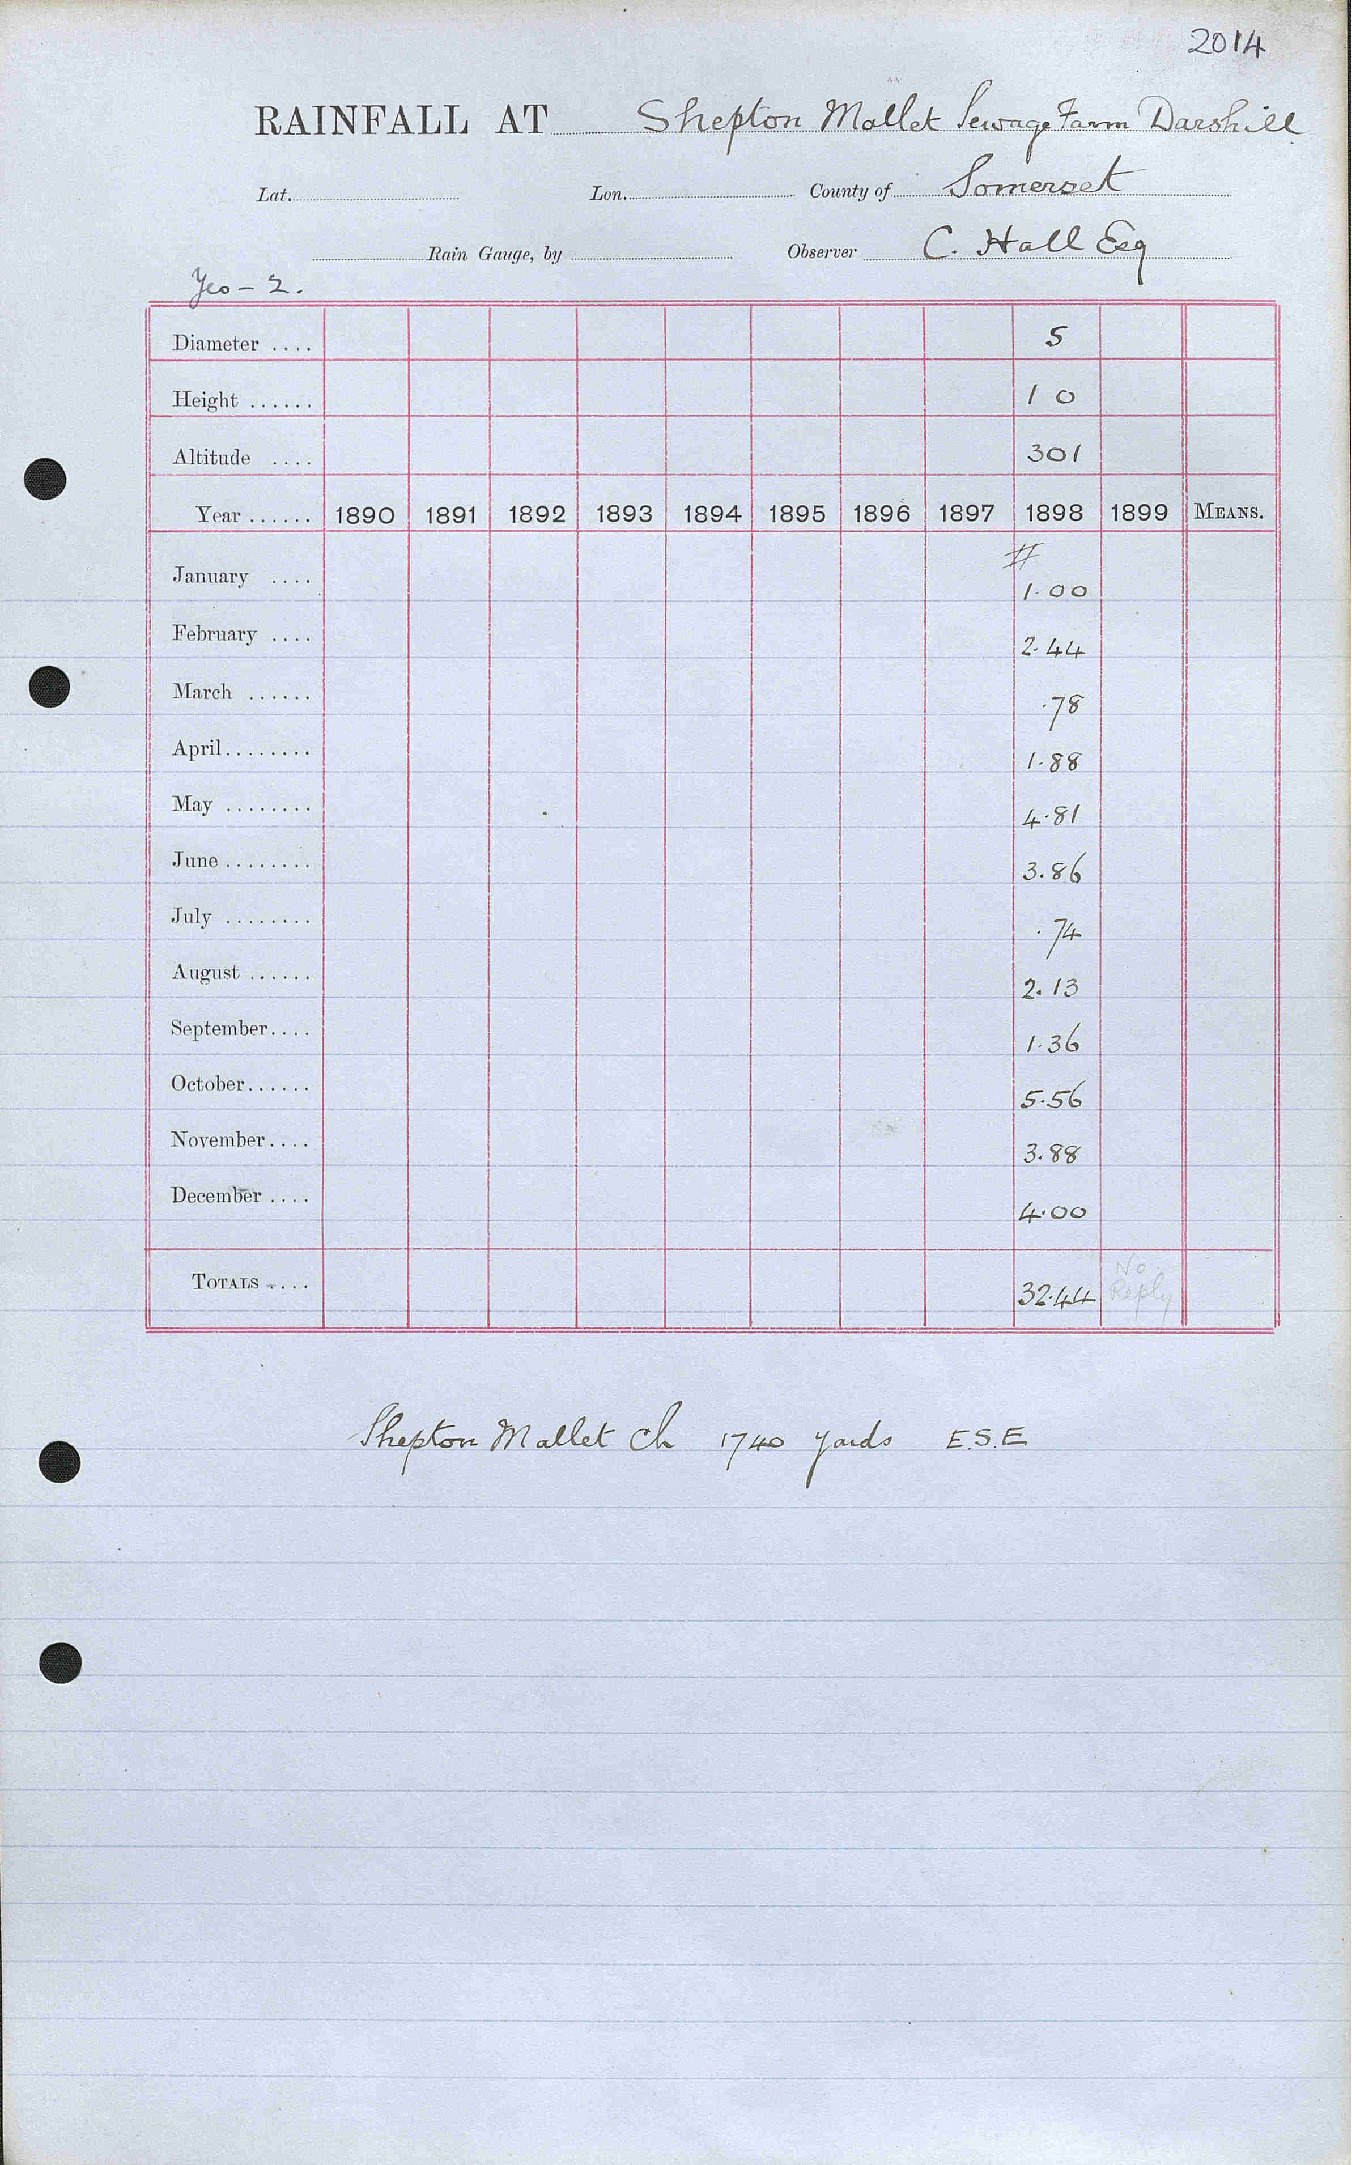 2014
RAINFALL AT Shepton Mallet Sewage Farm Darshill
Lat. Lon. County of Somerset
Rain Gauge, by Observer C. Hall Esq
Yeo - 2.
Diameter .... 5
Height ...... 1 0
Altitude .... 301
Year ...... 1890 1891 1892 1893 1894 1895 1896 1897 1898 1899 MEANS.
#
January .... 1.00
February .... 2.44
March ...... .78
April........ 1.88
May ........ 4.81
June ........ 3.86
July ........ .74
August ...... 2.13
September.... 1.36
October...... 5.56
November.... 3.88
December .... 4.00
TOTALS .... 32.44 No Reply
Shepton Mallet Ch 1740 yards E.S.E